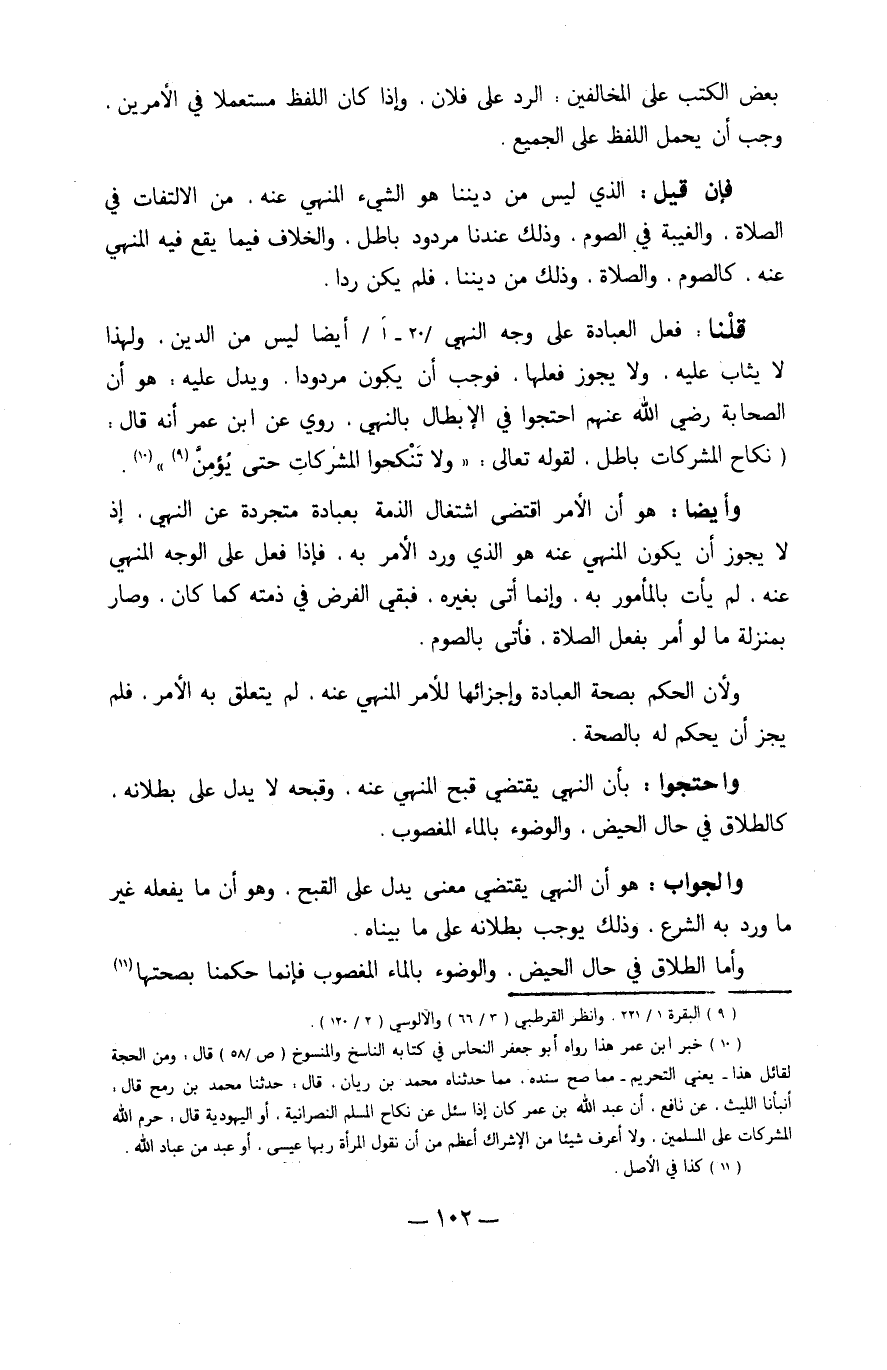 بعض الكتب على المخالفين : الرد على فلان . وإذا كان اللفظ مستعملا في الأمرين .
وجب أن يحمل اللفظ على الجميع .
فإن قيل : الذي ليس من ديننا هو الشيء المنهي عنه . من الالتفات في
الصلاة . والغيبة في الصوم . وذلك عندنا مردود باطل . والخلاف فيما يقع فيه المنهي
عنه . كالصوم . والصلاة . وذلك من ديننا . فلم يكن ردا .
قلْنا : فعل العبادة على وجه النهي /٢٠ ـ أ / أيضا ليس من الدين . ولهذا
لا يثاب عليه . ولا يجوز فعلها . فوجب أن يكون مردودا . ويدل عليه : هو أن
الصحابة رضي الله عنهم احتجوا في الإبطال بالنهي . روي عن ابن عمر أنه قال :
( نكاح المشركات باطل . لقوله تعالى : « ولا تَنْكحوا المشركاتِ حتى يُؤمِنَّ (٩) » (١٠) .
وأيضا : هو أن الأمر اقتضى اشتغال الذمة بعبادة متجردة عن النهي . إذ
لا يجوز أن يكون المنهي عنه هو الذي ورد الأمر به . فإذا فعل على الوجه المنهي
عنه . لم يأت بالمأمور به . وإنما أتى بغيره . فبقي الفرض في ذمته كما كان . وصار
بمنزلة ما لو أمر بفعل الصلاة . فأتى بالصوم .
ولأن الحكم بصحة العبادة وإجزائها للأمر المنهي عنه . لم يتعلق به الأمر . فلم
يجز أن يحكم له بالصحة .
واحتجوا : بأن النهي يقتضي قبح المنهي عنه . وقبحه لا يدل على بطلانه .
كالطلاق في حال الحيض . والوضوء بالماء المغصوب .
والجواب : هو أن النهي يقتضي معنى يدل على القبح . وهو أن ما يفعله غير
ما ورد به الشرع . وذلك يوجب بطلانه على ما بيناه .
وأما الطلاق في حال الحيض . والوضوء بالماء المغصوب فإنما حكمنا بصحتها (١١)
( ٩ ) البقرة ١ / ٢٢١ . وانظر القرطبي ( ٣ / ٦٦ ) والآلوسي ( ٢ / ١٢٠ ) .
( ١٠ ) خبر ابن عمر هذا رواه أبو جعفر النحاس في كتابه الناسخ والمنسوخ ( ص /٥٨ ) قال : ومن الحجة
لقائل هذا ـ يعني التحريم ـ مما صح سنده . مما حدثناه محمد بن ريان . قال : حدثنا محمد بن رمح قال :
أنبأنا الليث . عن نافع . أن عبد الله بن عمر كان إذا سئل عن نكاح المسلم النصرانية . أو اليهودية قال : حرم الله
المشركات على المسلمين . ولا أعرف شيئا من الإشراك أعظم من أن نقول المرأة ربها عيسى . أو عبد من عباد الله .
( ١١ ) كذا في الأصل .
— ١٠٢ —